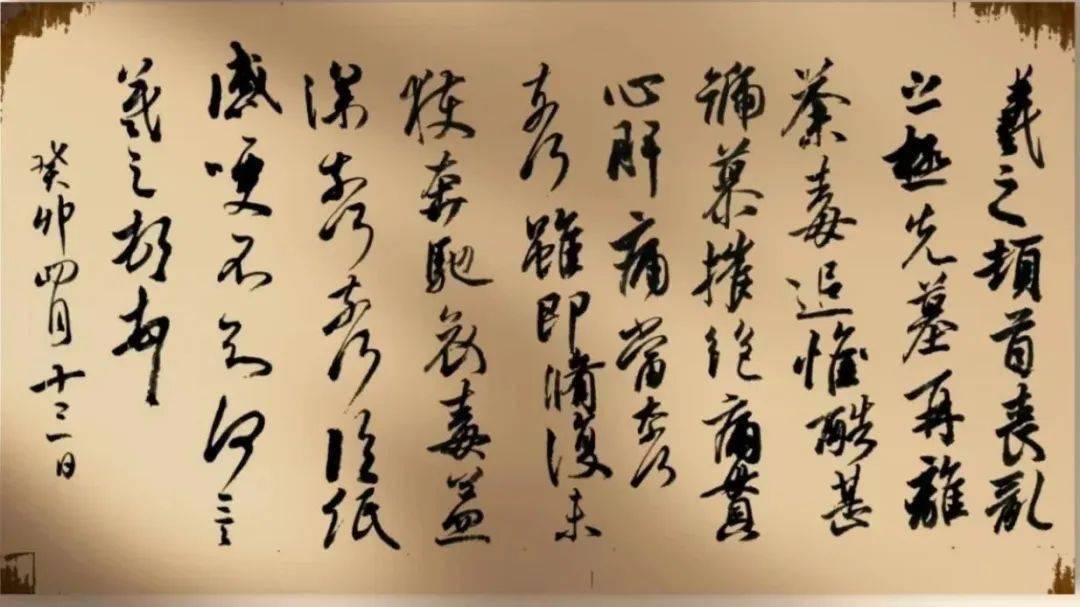 羲之頓首喪亂
之極先墓再離
荼毒追惟酷甚
號慕摧絕痛貫
心肝痛當奈何
奈何雖即脩復未
獲奔馳哀毒益
深奈何奈何臨紙
感哽不知何言
羲之頓首
癸卯四月十三日